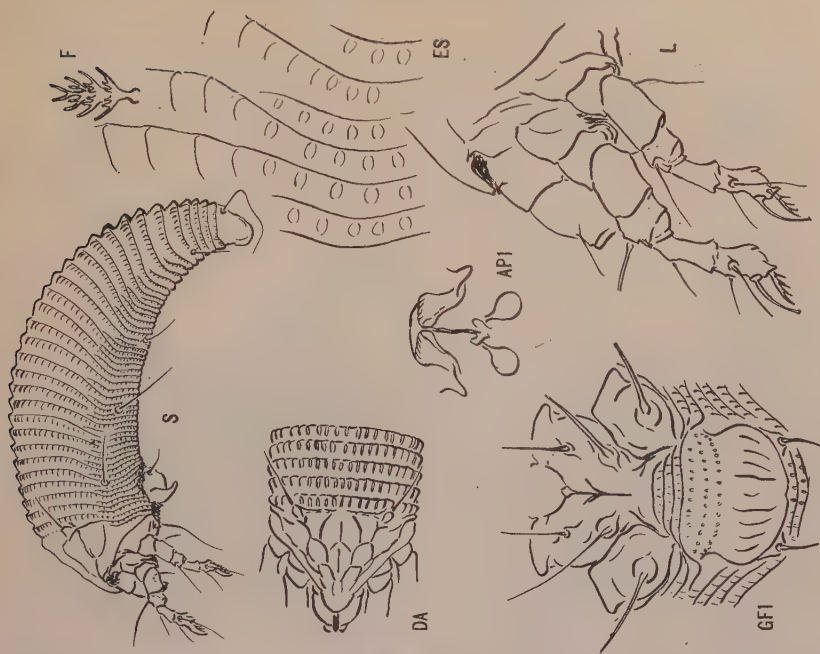 F
ES
L
S
API
DA
GFI